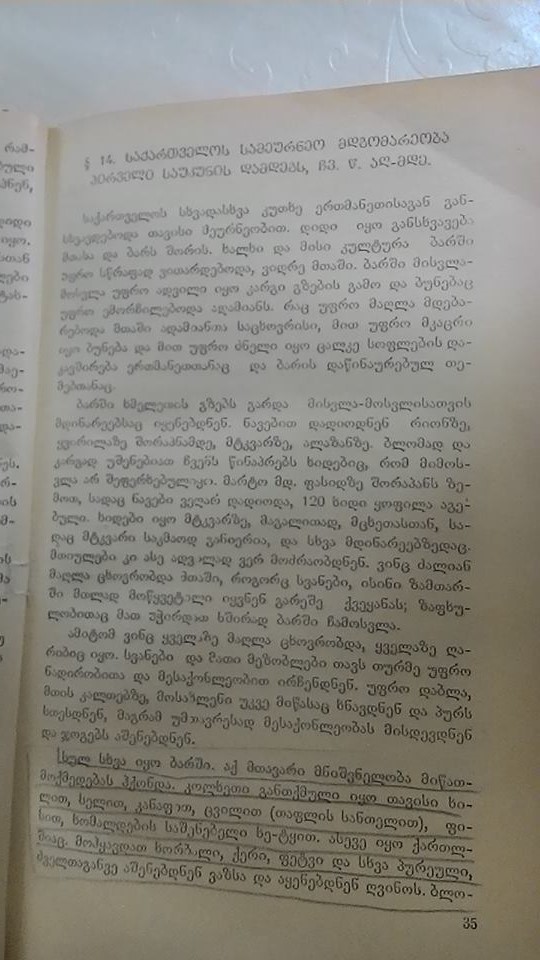 რამ-
ბული
პნენ,
დიდი
იყო.
სთან
ლები
ტას-
და-
მაე-
რო-
თა-
და-
ნეს.
რ-
რის
მ-
ის
მა
§ 14. საქართველოს სამეურნეო მდგომარეობა
პირველი საუკუნის დამდეგს, ჩვ. წ. აღ-მდე.
საქართველოს სხვადასხვა კუთხე ერთმანეთისაგან გან-
სხვავდებოდა თავისი მეურნეობით. დიდი იყო განსხვავება
მთასა და ბარს შორის. ხალხი და მისი კულტურა ბარში
უფრო სწრაფად ვითარდებოდა, ვიდრე მთაში. ბარში მისვლა-
მოსვლა უფრო ადვილი იყო კარგი გზების გამო და ბუნებაც
უფრო ემორჩილებოდა ადამიანს. რაც უფრო მაღლა მდება-
რეობდა მთაში ადამიანთა საცხოვრისი, მით უფრო მკაცრი
იყო ბუნება და მით უფრო ძნელი იყო ცალკე სოფლების და-
კავშირება ერთმანეთთანაც და ბარის დაწინაურებულ თე-
მებთანაც.
ბარში ხმელეთის გზებს გარდა მისვლა-მოსვლისათვის
მდინარეებსაც იყენებდნენ. ნავებით დადიოდნენ რიონზე,
ყვირილაზე შორაპნამდე, მტკვარზე, ალაზანზე. ბლომად და
კარგად უშენებიათ ჩვენს წინაპრებს ხიდებიც, რომ მიმოს-
ვლა არ შეფერხებულიყო. მარტო მდ. ფასიდზე შორაპანს ზე-
მოთ, სადაც ნავები ველარ დადიოდა, 120 ხიდი ყოფილა აგე-
ბული. ხიდები იყო მტკვარზე, მაგალითად, მცხეთასთან, სა-
დაც მტკვარი საკმაოდ განიერია, და სხვა მდინარეებზედაც.
მთიულები კი ასე ადვილად ვერ მოძრაობდნენ. ვინც ძალიან
მაღლა ცხოვრობდა მთაში, როგორც სვანები, ისინი ზამთარ-
ში მთლად მოწყვეტილი იყვნენ გარეშე ქვეყანას; ზაფხუ-
ლობითაც მათ უჭირდათ ხშირად ბარში ჩამოსვლა.
ამიტომ ვინც ყველაზე მაღლა ცხოვრობდა, ყველაზე ღა-
რიბიც იყო. სვანები და მათი მეზობლები თავს თურმე უფრო
ნადირობითა და მესაქონლეობით ირჩენდნენ. უფრო დაბლა,
მთის კალთებზე, მოსახლენი უკვე მიწასაც ხნავდნენ და პურს
სთესდნენ, მაგრამ უმთავრესად მესაქონლეობას მისდევდნენ
და ჯოგებს აშენებდნენ.
სულ სხვა იყო ბარში. აქ მთავარი მნიშვნელობა მიწათ-
მოქმედებას ჰქონდა. კოლხეთი განთქმული იყო თავისი ხი-
ლით, სელით, კანაფით, ცვილით (თაფლის სანთელით), ფი-
სით, ხომალდების საშენებელი ხე-ტყით. ასევე იყო ქართლ-
შიაც. მოჰყავდათ ხორბალი, ქერი, ფეტვი და სხვა პურეული,
ძველთაგანვე აშენებდნენ ვაზსა და აყენებდნენ ღვინოს. ბლო-
35